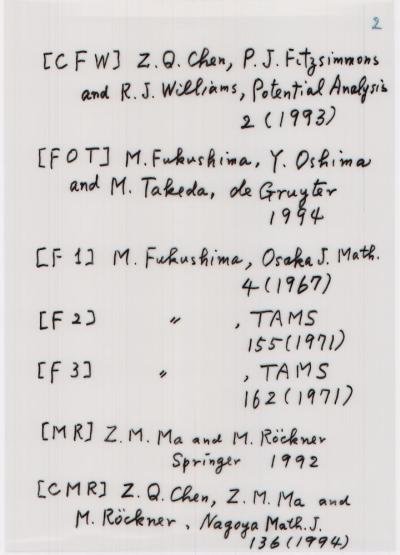 2
[CFW] Z.Q. Chen, P.J. Fitzsimmons
and R.J. Williams, Potential Analysis
2 (1993)
[FOT] M. Fukushima, Y. Oshima
and M. Takeda, de Gruyter
1994
[F1] M. Fukushima, Osaka J. Math.
4 (1967)
[F2] 〃 , TAMS
155 (1971)
[F3] 〃 , TAMS
162 (1971)
[MR] Z.M. Ma and M. Röckner
Springer 1992
[CMR] Z.Q. Chen, Z.M. Ma and
M. Röckner, Nagoya Math. J.
136 (1994)